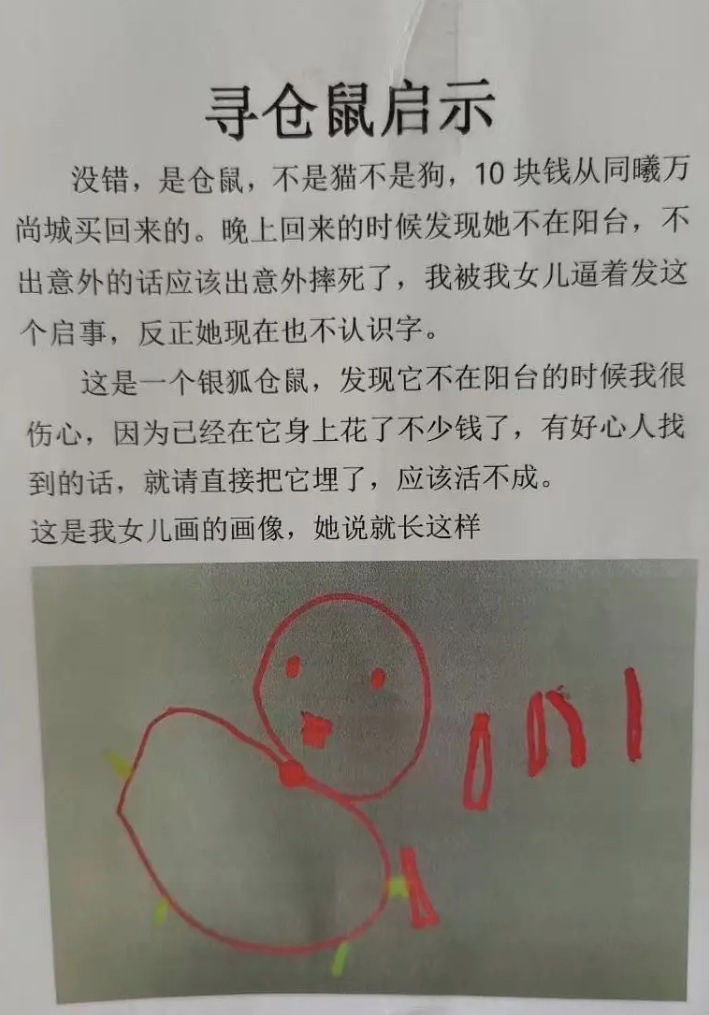 寻仓鼠启示
没错，是仓鼠，不是猫不是狗，10 块钱从同曦万
尚城买回来的。晚上回来的时候发现她不在阳台，不
出意外的话应该出意外摔死了，我被我女儿逼着发这
个启事，反正她现在也不认识字。
这是一个银狐仓鼠，发现它不在阳台的时候我很
伤心，因为已经在它身上花了不少钱了，有好心人找
到的话，就请直接把它埋了，应该活不成。
这是我女儿画的画像，她说就长这样